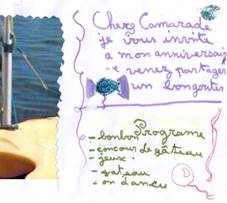 Cherz Camarade
je vous invite
a mon anniversai
venez partager
un bon goûter
Programe
- bonbon
- concour de gâteau
- jeux
- gateau
- on dance